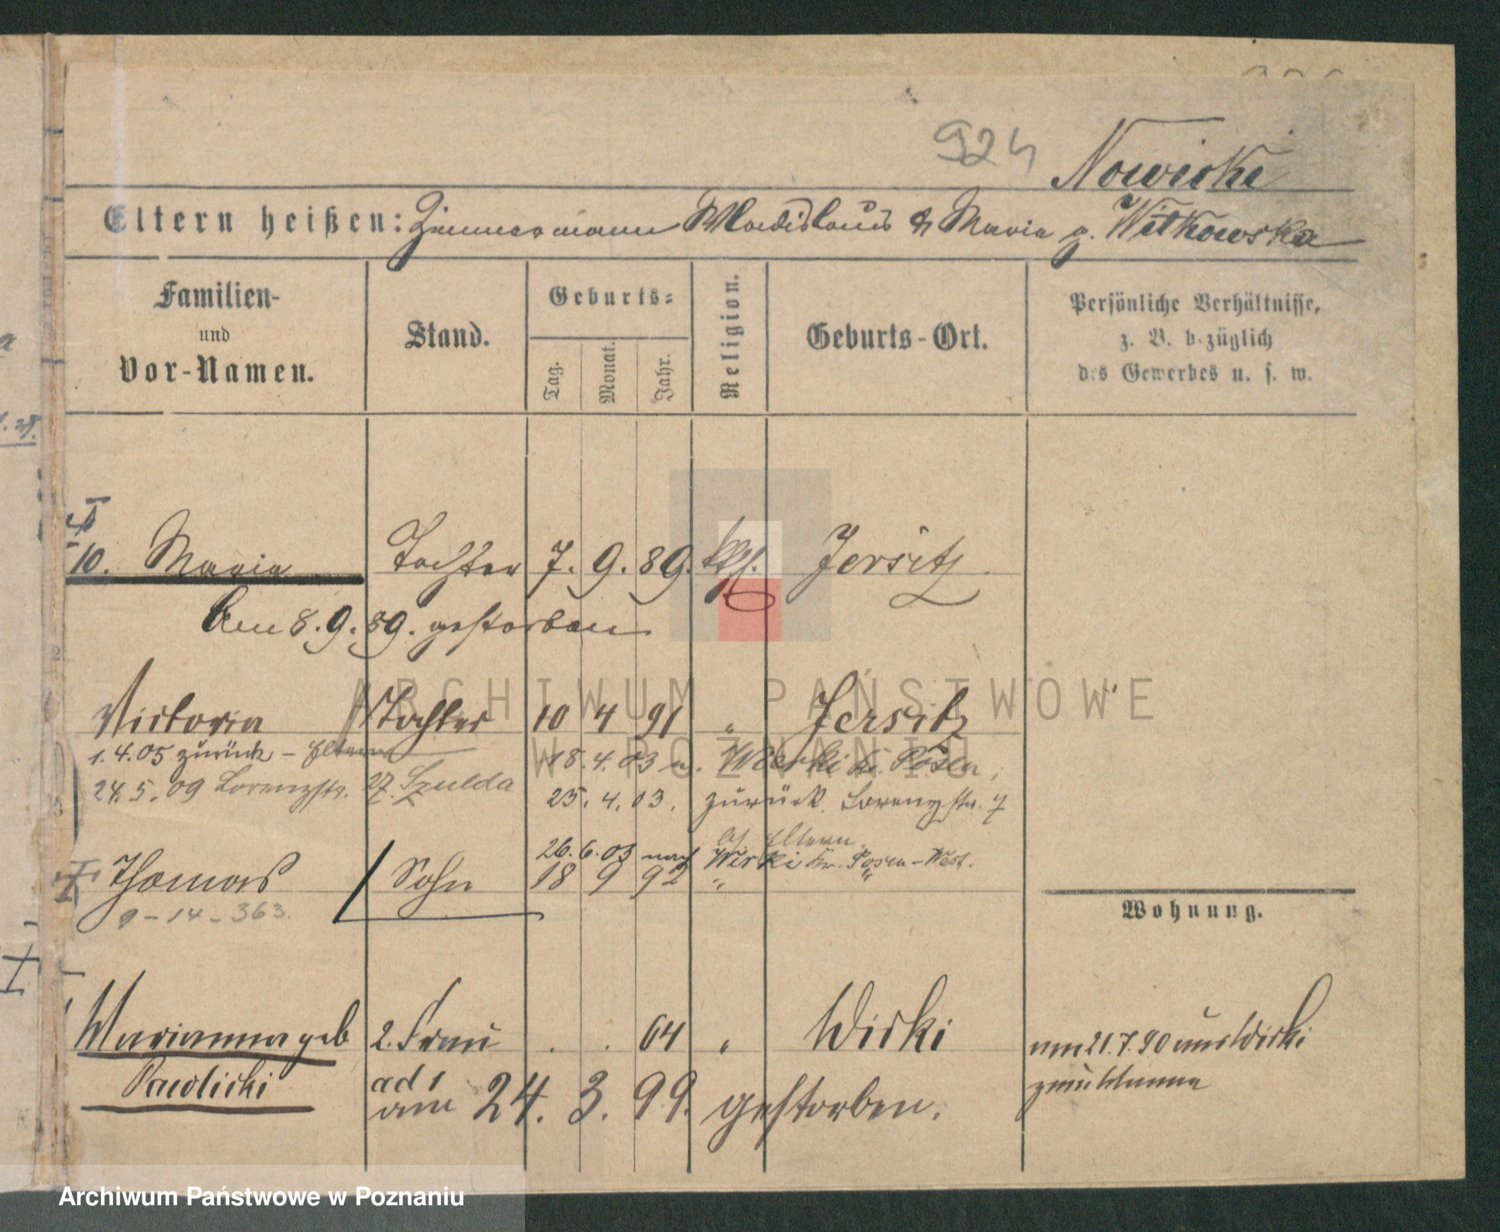 924
Nowicki
Eltern heißen: Zimmermann Wladislaus & Maria g. Witkowska
Familien-
und
Vor-Namen.
Stand.
Geburts-
Tag.
Monat.
Jahr.
Religion.
Geburts-Ort.
Persönliche Verhältnisse,
z. B. bezüglich
des Gewerbes u. s. w.
10. Maria Tochter 7. 9. 89. kth. Jersitz
Am 8. 9. 89. gestorben
Victoria Tochter 10 4 91 " Jersitz
1.4.05 zurück - Eltern
18.4.03 n. Wirki Kr. Posen,
24.5.09 Lorenzstr. 27. Szulda
25.4.03. zurück. Lorenzstr. 7
Eltern
26.6.03 nach Wirki Kr. Posen-West.
Thomas Sohn 18 9 92 " "
9-14-363.
Wohnung.
Marianna geb 2. Frau . . 64 " Wirki
am 21.7.90 aus Wirki
Pawlicki
ad 1
am 24. 3. 99. gestorben.
ARCHIWUM PAŃSTWOWE
W POZNANIU
Archiwum Państwowe w Poznaniu